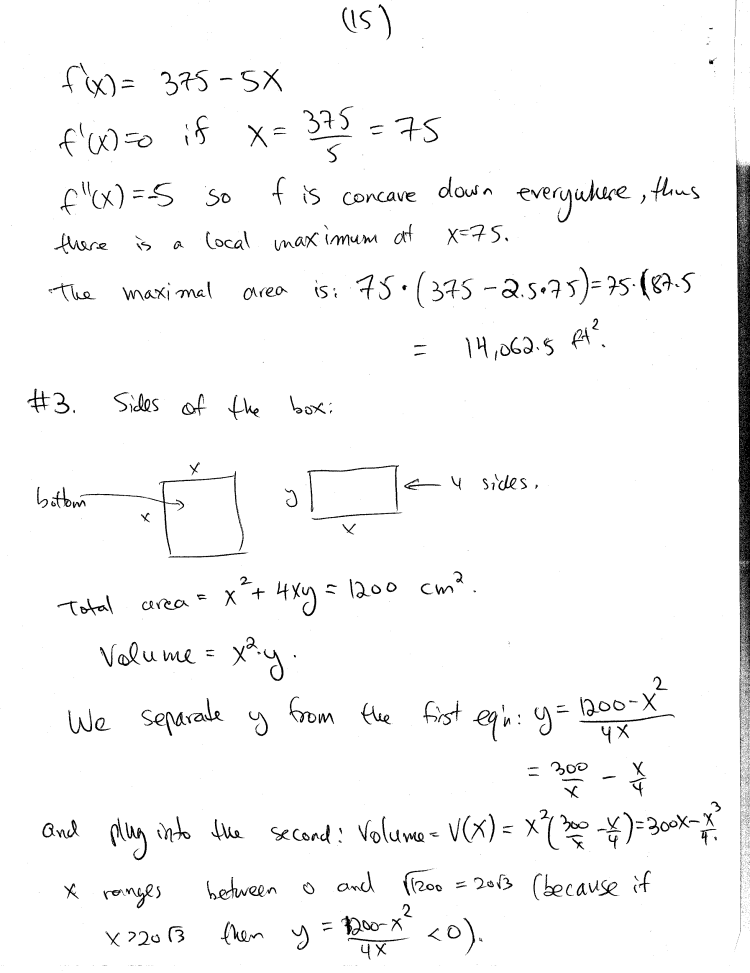 (15)
f'(x) = 375 - 5x
f'(x)=0 if x = 375/5 = 75
f''(x) = -5 so f is concave down everywhere, thus
there is a local maximum at x=75.
The maximal area is: 75·(375 - 2.5·75) = 75·187.5
= 14,062.5 ft².
#3. Sides of the box:
x
bottom
x
y
x
← 4 sides.
Total area = x² + 4xy = 1200 cm².
Volume = x²·y.
We separate y from the first eq'n: y = (1200-x²)/4x
= 300/x - x/4
and plug into the second: Volume = V(x) = x²(300/x - x/4) = 300x - x³/4.
x ranges between 0 and √1200 = 20√3 (because if
x>20√3 then y = (1200-x²)/4x <0).